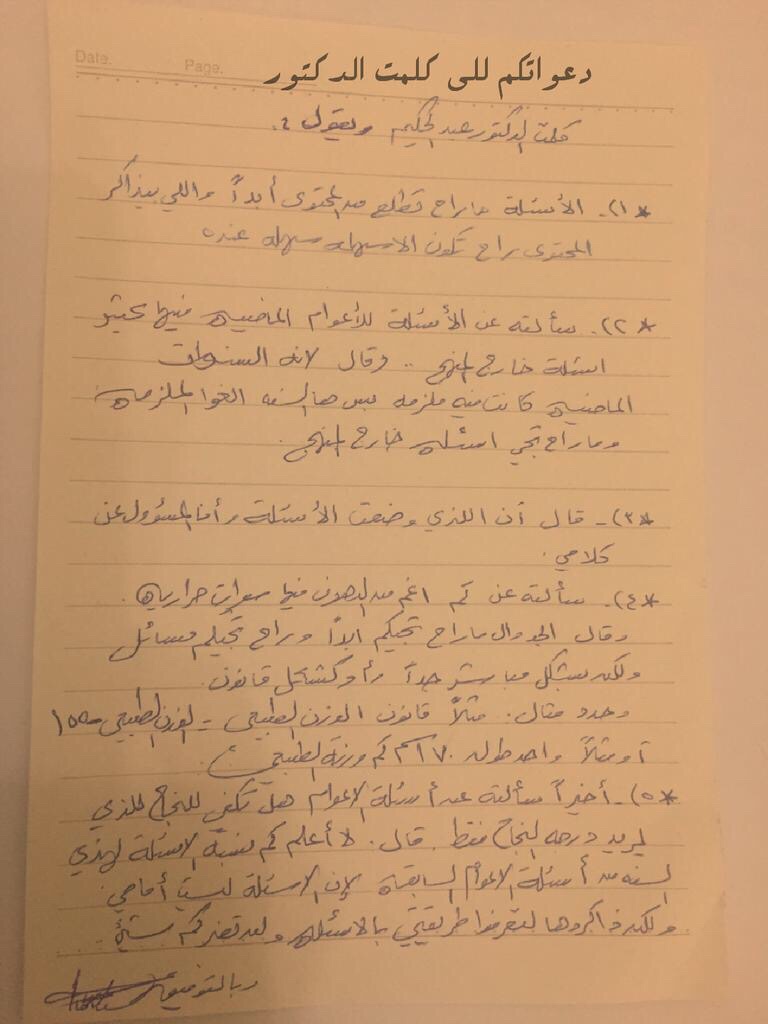 Date. Page.
دعواتكم للى كلمت الدكتور
كلمت الدكتور عبدالحكيم ويقول :
*١)- الأسئلة ماراح تطلع من المحتوى أبداً واللي بيذاكر
المحتوى راح تكون الاسئله سهله عنده
*٢)- سألته عن الأسئلة للأعوام الماضيه فيها كثير
اسئلة خارج المنهج .. وقال لانه السنوات
الماضيه كانت فيه ملزمه بس هالسنه الغوا الملزمه
وماراح تجي اسئله خارج المنهج .
*٣)- قال أن اللذي وضعت الأسئلة وأنا المسؤول عن
كلامي .
*٤)- سألته عن كم اغم من الدهون فيها سعرات حراريه .
وقال الجدوال ماراح تجيكم ابداً وراح تجيكم مسائل
ولكن بشكل مباشر جداً أو كشكل قانون .
وحدد مثال : مثلاً قانون الوزن الطبيعي = الوزن الطبيعي - ١٥٠
أو مثلاً واحد طوله ١٧٠ سم كم وزنه الطبيعي .
*٥)- أخيراً سألته عن أسئلة الاعوام هل تكفي للنجاح للذي
يريد درجه النجاح فقط . قال : لا أعلم كم نسبة الاسئلة لهذي
السنه من أسئلة الاعوام السابقة لإن الاسئلة ليست أمامي .
ولكن ذاكروها لتعرفوا طريقتي بالاسئله ولن تضركم شيئ ..
وبالتوفيق